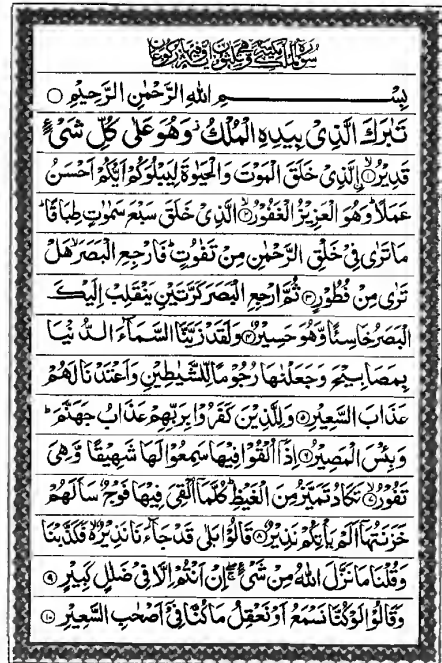 سورة الملك مكية وهي ثلثون آية وفيها ركوعان
بِسْمِ اللهِ الرَّحْمٰنِ الرَّحِيْمِ ○
تَبٰرَكَ الَّذِيْ بِيَدِهِ الْمُلْكُ وَهُوَ عَلٰى كُلِّ شَيْءٍ
قَدِيْرُ ۙ﴿۱﴾ الَّذِيْ خَلَقَ الْمَوْتَ وَالْحَيٰوةَ لِيَبْلُوَكُمْ اَيُّكُمْ اَحْسَنُ
عَمَلًا ؕ وَهُوَ الْعَزِيْزُ الْغَفُوْرُ ۙ﴿۲﴾ الَّذِيْ خَلَقَ سَبْعَ سَمٰوٰتٍ طِبَاقًا ؕ
مَا تَرٰى فِيْ خَلْقِ الرَّحْمٰنِ مِنْ تَفٰوُتٍ ؕ فَارْجِعِ الْبَصَرَ ۙ هَلْ
تَرٰى مِنْ فُطُوْرٍ ﴿۳﴾ ثُمَّ ارْجِعِ الْبَصَرَ كَرَّتَيْنِ يَنْقَلِبْ اِلَيْكَ
الْبَصَرُ خَاسِئًا وَّهُوَ حَسِيْرٌ ﴿۴﴾ وَلَقَدْ زَيَّنَّا السَّمَآءَ الدُّنْيَا
بِمَصَابِيْحَ وَجَعَلْنٰهَا رُجُوْمًا لِّلشَّيٰطِيْنِ وَاَعْتَدْنَا لَهُمْ
عَذَابَ السَّعِيْرِ ﴿۵﴾ وَلِلَّذِيْنَ كَفَرُوْا بِرَبِّهِمْ عَذَابُ جَهَنَّمَ ؕ
وَبِئْسَ الْمَصِيْرُ ﴿۶﴾ اِذَآ اُلْقُوْا فِيْهَا سَمِعُوْا لَهَا شَهِيْقًا وَّهِيَ
تَفُوْرُ ۙ﴿۷﴾ تَكَادُ تَمَيَّزُ مِنَ الْغَيْظِ ؕ كُلَّمَآ اُلْقِيَ فِيْهَا فَوْجٌ سَاَلَهُمْ
خَزَنَتُهَآ اَلَمْ يَاْتِكُمْ نَذِيْرٌ ﴿۸﴾ قَالُوْا بَلٰى قَدْ جَآءَنَا نَذِيْرٌ ۙ فَكَذَّبْنَا
وَقُلْنَا مَا نَزَّلَ اللهُ مِنْ شَيْءٍ ۖ اِنْ اَنْتُمْ اِلَّا فِيْ ضَلٰلٍ كَبِيْرٍ ﴿۹﴾
وَقَالُوْا لَوْ كُنَّا نَسْمَعُ اَوْ نَعْقِلُ مَا كُنَّا فِيْٓ اَصْحٰبِ السَّعِيْرِ ﴿۱۰﴾